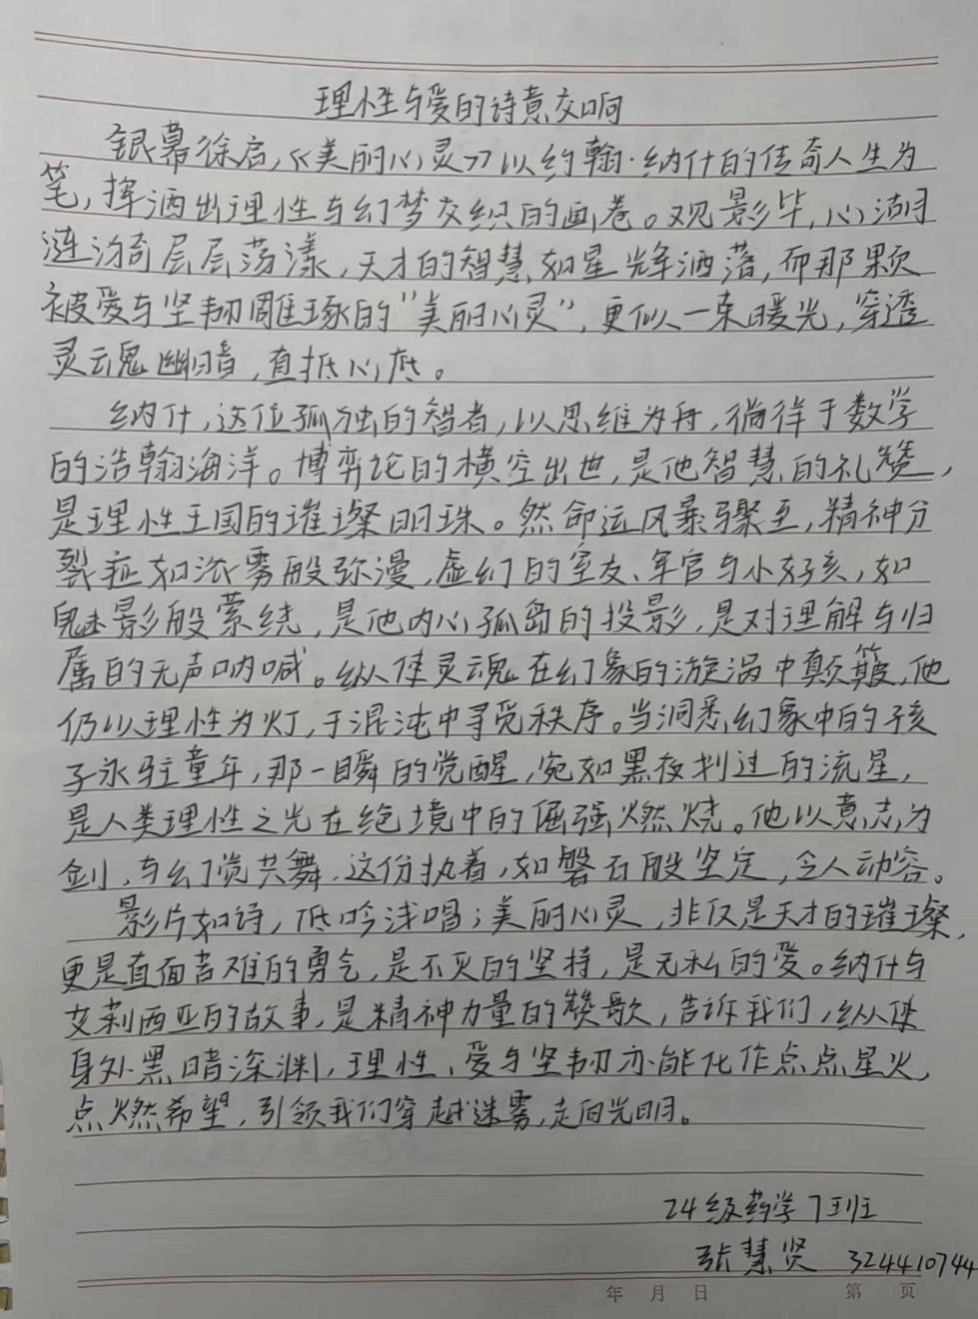 理性与爱的诗意交响
银幕徐启,《美丽心灵》以约翰·纳什的传奇人生为
笔,挥洒出理性与幻梦交织的画卷。观影毕,心湖
涟漪层层荡漾,天才的智慧如星辉洒落,而那颗
被爱与坚韧雕琢的"美丽心灵",更似一束暖光,穿透
灵魂幽暗,直抵心底。
纳什,这位孤独的智者,以思维为舟,徜徉于数学
的浩瀚海洋。博弈论的横空出世,是他智慧的礼赞,
是理性王国的璀璨明珠。然命运风暴骤至,精神分
裂症如浓雾般弥漫,虚幻的室友、军官与小女孩,如
魅影般萦绕,是他内心孤岛的投影,是对理解与归
属的无声呐喊。纵使灵魂在幻象的漩涡中颠簸,他
仍以理性为灯,于混沌中寻觅秩序。当洞悉幻象中的孩
子永驻童年,那一瞬的觉醒,宛如黑夜划过的流星,
是人类理性之光在绝境中的倔强燃烧。他以意志为
剑,与幻觉共舞,这份执着,如磐石般坚定,令人动容。
影片如诗,低吟浅唱;美丽心灵,非仅是天才的璀璨,
更是直面苦难的勇气,是不灭的坚持,是无私的爱。纳什与
艾莉西亚的故事,是精神力量的赞歌,告诉我们,纵使
身处黑暗深渊,理性、爱与坚韧亦能化作点点星火,
点燃希望,引领我们穿越迷雾,走向光明。
24级药学7班
张慧贤 324410744
年 月 日 第 页